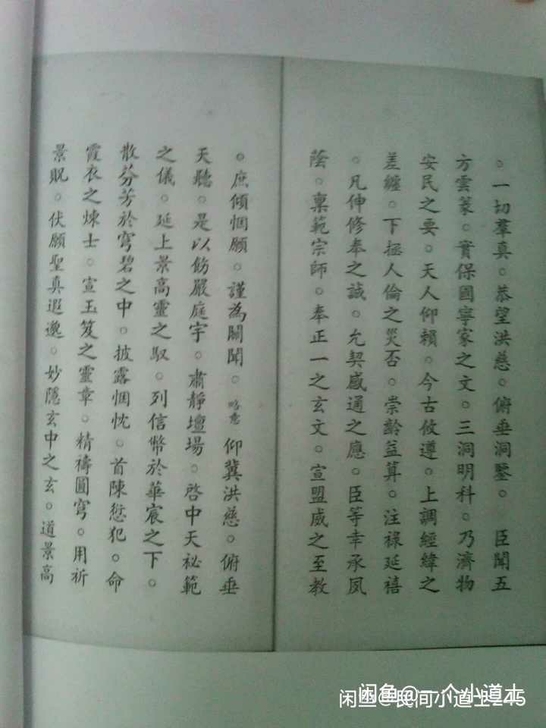 。一切羣真。恭望洪慈。俯垂洞鑒。　臣聞五
方雲篆。實保國寧家之文。三洞明科。乃濟物
安民之要。天人仰賴。今古攸遵。上調經緯之
差纏。下拯人倫之災否。崇齡益算。注祿延禧
。凡伸修奉之誠。允契感通之應。臣等幸承夙
蔭。稟範宗師。奉正一之玄文。宣盟威之至教
。庶傾悃願。謹為關聞。略意　仰冀洪慈。俯垂
天聽。是以飭嚴庭宇。肅靜壇場。啓中天祕範
之儀。延上景高靈之馭。列信幣於華宸之下。
散芬芳於穹碧之中。披露悃忱。首陳愆犯。命
霞衣之煉士。宣玉笈之靈章。精禱圓穹。用祈
景貺。伏願聖真遐邈。妙隱玄中之玄。道景高
闲鱼@一个小道士
闲鱼@民间小道士245